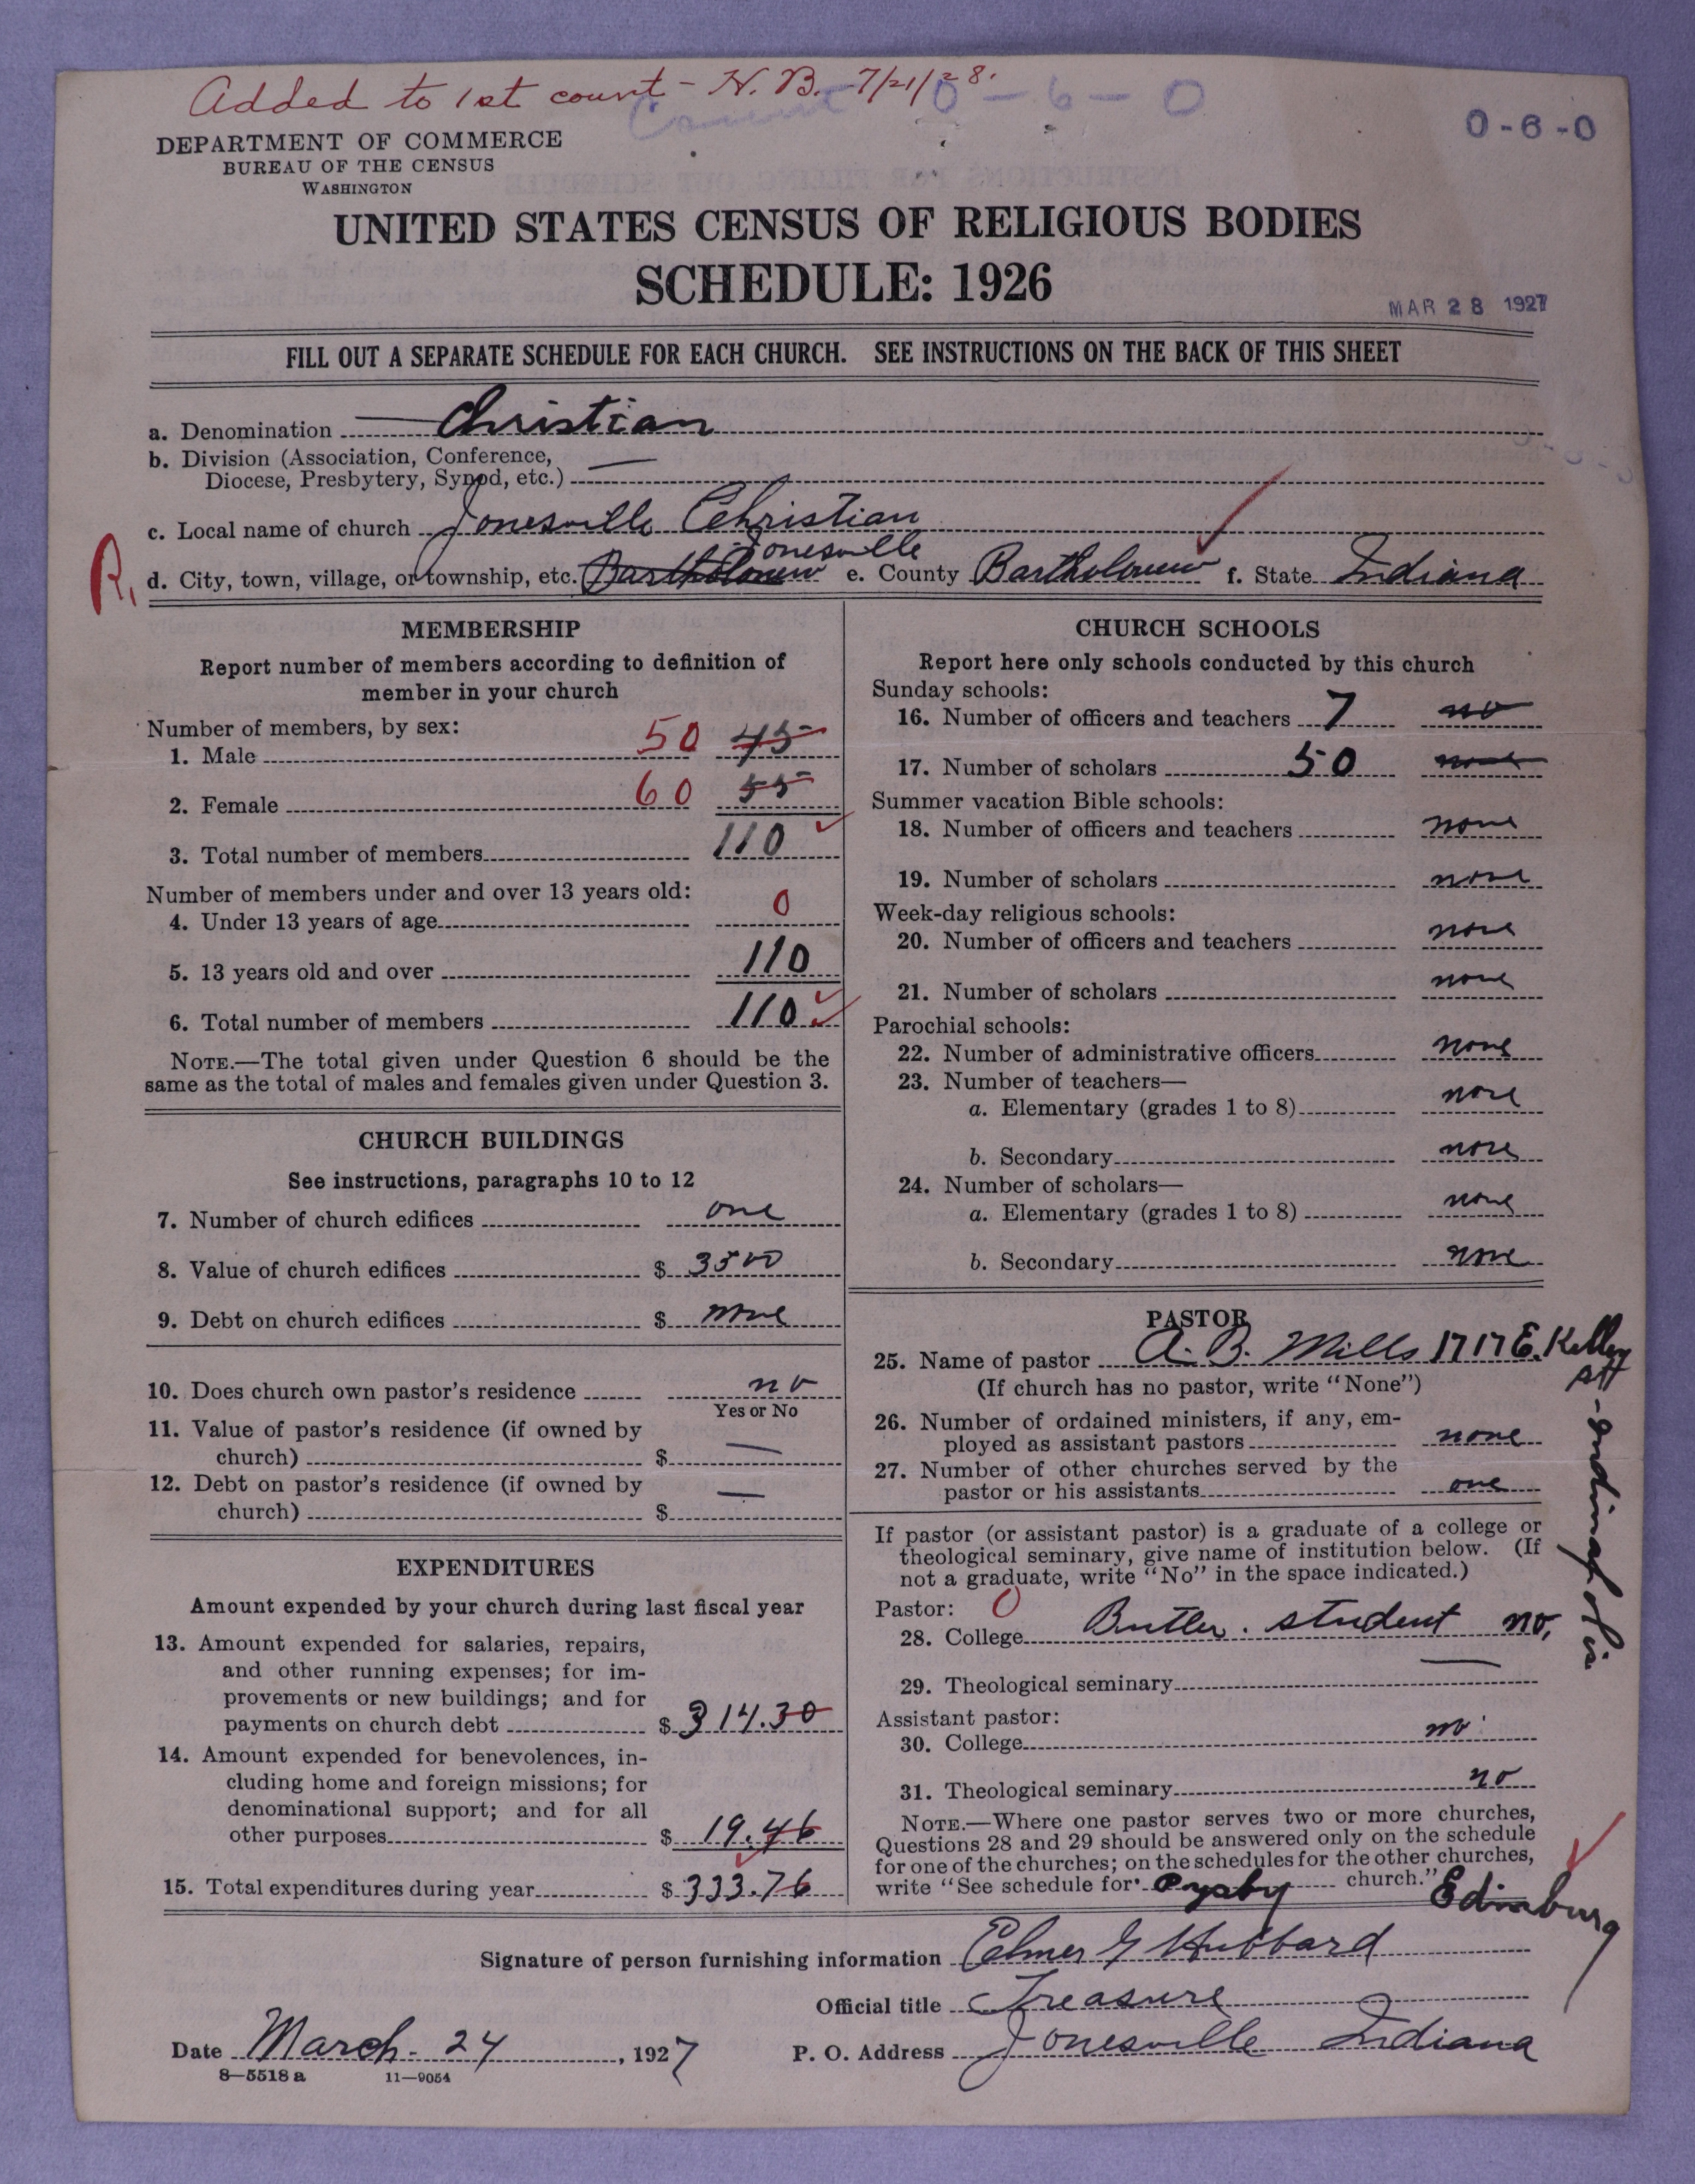 Added to 1st count - H. B. 7/21/28.
0 - 6 - 0
0-6-0
DEPARTMENT OF COMMERCE
BUREAU OF THE CENSUS
WASHINGTON
UNITED STATES CENSUS OF RELIGIOUS BODIES
SCHEDULE: 1926
MAR 28 1927
FILL OUT A SEPARATE SCHEDULE FOR EACH CHURCH. SEE INSTRUCTIONS ON THE BACK OF THIS SHEET
a. Denomination Christian
b. Division (Association, Conference,
Diocese, Presbytery, Synod, etc.) —
c. Local name of church Jonesville Christian
R. d. City, town, village, or township, etc. Bartholomew Jonesville e. County Bartholomew f. State Indiana
MEMBERSHIP
Report number of members according to definition of
member in your church
Number of members, by sex:
1. Male 50 45
2. Female 60 55
3. Total number of members 110
Number of members under and over 13 years old:
4. Under 13 years of age 0
5. 13 years old and over 110
6. Total number of members 110
NOTE.—The total given under Question 6 should be the
same as the total of males and females given under Question 3.
CHURCH BUILDINGS
See instructions, paragraphs 10 to 12
7. Number of church edifices one
8. Value of church edifices $ 3500
9. Debt on church edifices $ none
10. Does church own pastor's residence no
Yes or No
11. Value of pastor's residence (if owned by
church) $ —
12. Debt on pastor's residence (if owned by
church) $ —
EXPENDITURES
Amount expended by your church during last fiscal year
13. Amount expended for salaries, repairs,
and other running expenses; for im-
provements or new buildings; and for
payments on church debt $ 314.30
14. Amount expended for benevolences, in-
cluding home and foreign missions; for
denominational support; and for all
other purposes $ 19.46
15. Total expenditures during year $ 333.76
CHURCH SCHOOLS
Report here only schools conducted by this church
Sunday schools:
16. Number of officers and teachers 7 no
17. Number of scholars 50 none
Summer vacation Bible schools:
18. Number of officers and teachers none
19. Number of scholars none
Week-day religious schools:
20. Number of officers and teachers none
21. Number of scholars none
Parochial schools:
22. Number of administrative officers none
23. Number of teachers—
a. Elementary (grades 1 to 8) none
b. Secondary none
24. Number of scholars—
a. Elementary (grades 1 to 8) none
b. Secondary none
PASTOR
25. Name of pastor A. B. Mills 1717 E. Kelley
(If church has no pastor, write "None")
26. Number of ordained ministers, if any, em-
ployed as assistant pastors none
27. Number of other churches served by the
pastor or his assistants one
If pastor (or assistant pastor) is a graduate of a college or
theological seminary, give name of institution below. (If
not a graduate, write "No" in the space indicated.)
Pastor: 0
28. College Butler. student no.
29. Theological seminary —
Assistant pastor:
30. College no
31. Theological seminary no
NOTE.—Where one pastor serves two or more churches,
Questions 28 and 29 should be answered only on the schedule
for one of the churches; on the schedules for the other churches,
write "See schedule for church." Edinburg
Signature of person furnishing information Elmer G Hubbard
Official title Treasure
Date March 24, 1927
P. O. Address Jonesville Indiana
8—5518 a 11—9054